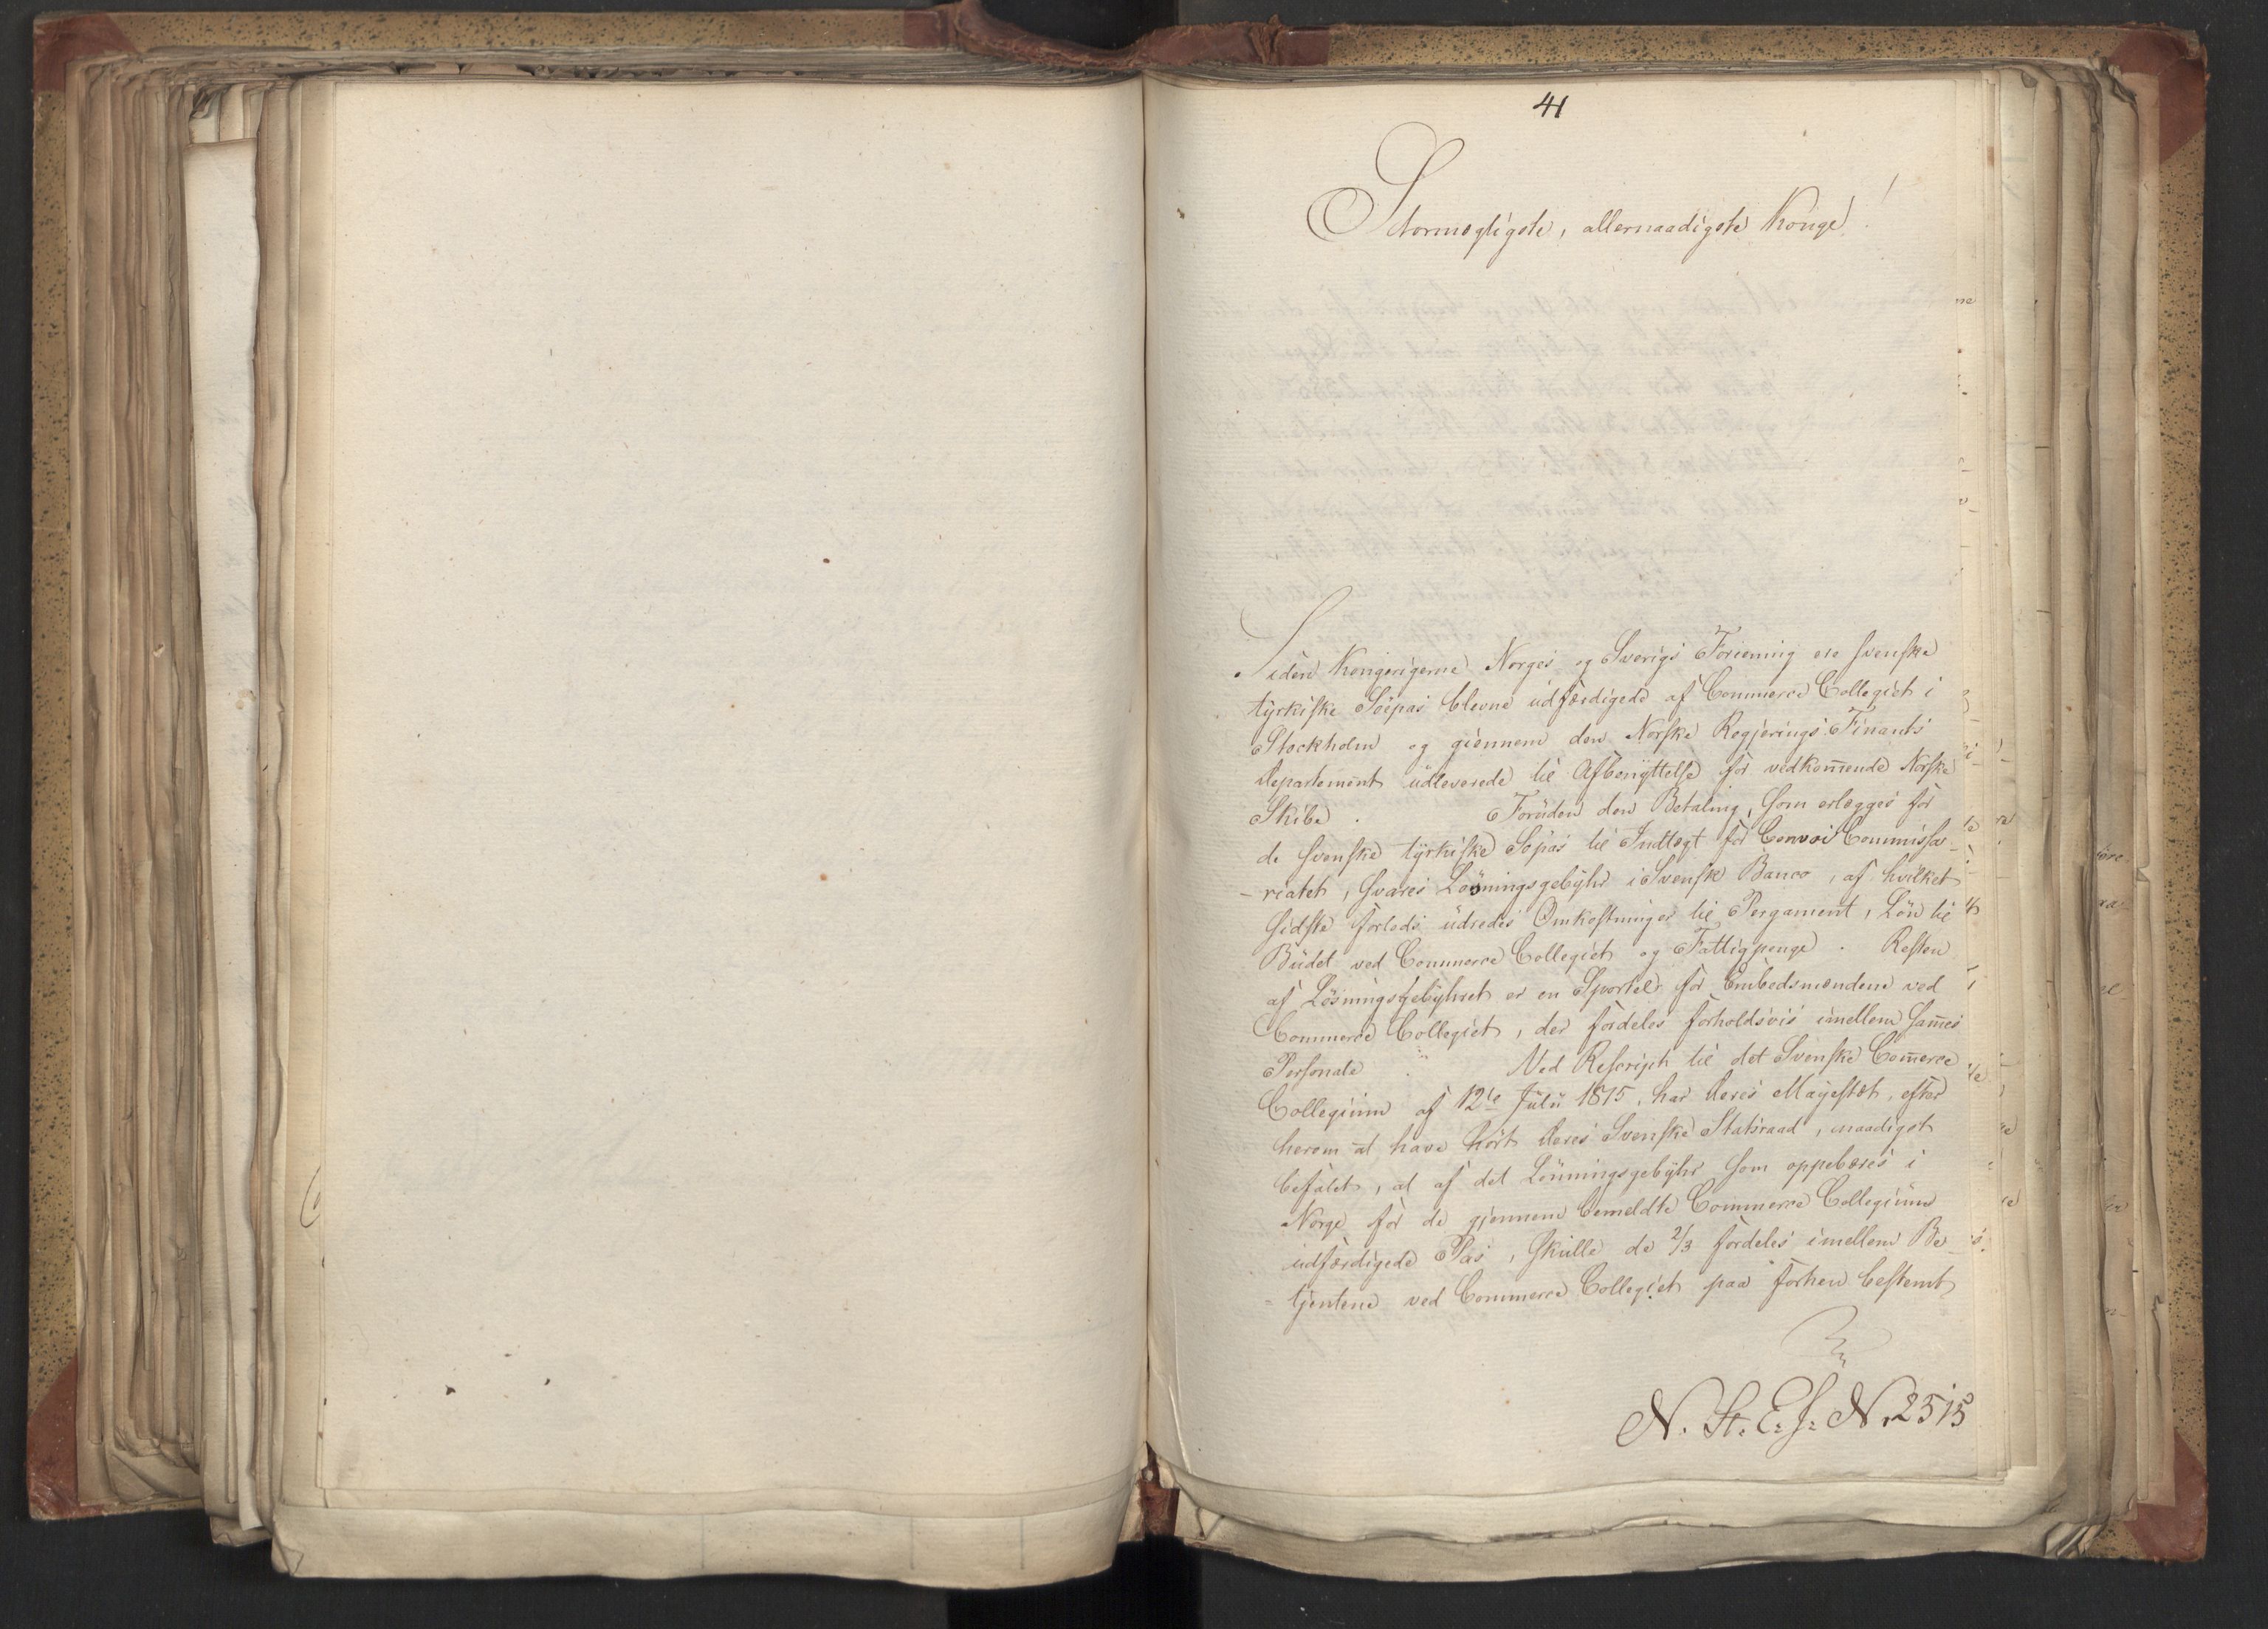 41
Stormegtigste, allernaadigste Konge!
Siden Kongerigerne Norges og Sverigs Forening ere svenske
tyrkiske Söepas blevne udfærdigede af Commerce Collegiet i
Stockholm og giennem den Norske Regjerings Finants
Departement udleverede til Afbenyttelse for vedkom̅ende Norske
Skibe. Foruden den Betaling, som erlægges for
de svenske tyrkiske Söpas til Indtægt for Convoi Commissa-
-riatet, svares Lösningsgebyhr i Svensk Banco, af hvilket
sidste forlods udredes Omkostninger til Pergament, Lön til
Budet ved Commerce Collegiet og Fattigpenge. Resten
af Lösningsgebyhret er en Sportel for Embedsmændene ved
Commerce Collegiet, der fordeles forholdsvis imellem sam̅es
Personale. Ved Rescript til det Svenske Com̅erce
Collegium af 12te Julii 1815, har Deres Majestæt, efter
herom at have hört Deres Svenske Statsraad, naadigst
befalet, at af det Lösningsgebyhr som oppebæres i
Norge for de gjennem bemeldte Commerce Collegium
udfærdigede Pas, skulle de 2/3 fordeles imellem Be-
-tjentene ved Commerce Collegiet paa forhen bestemt
N. St. E. J: N. 2515